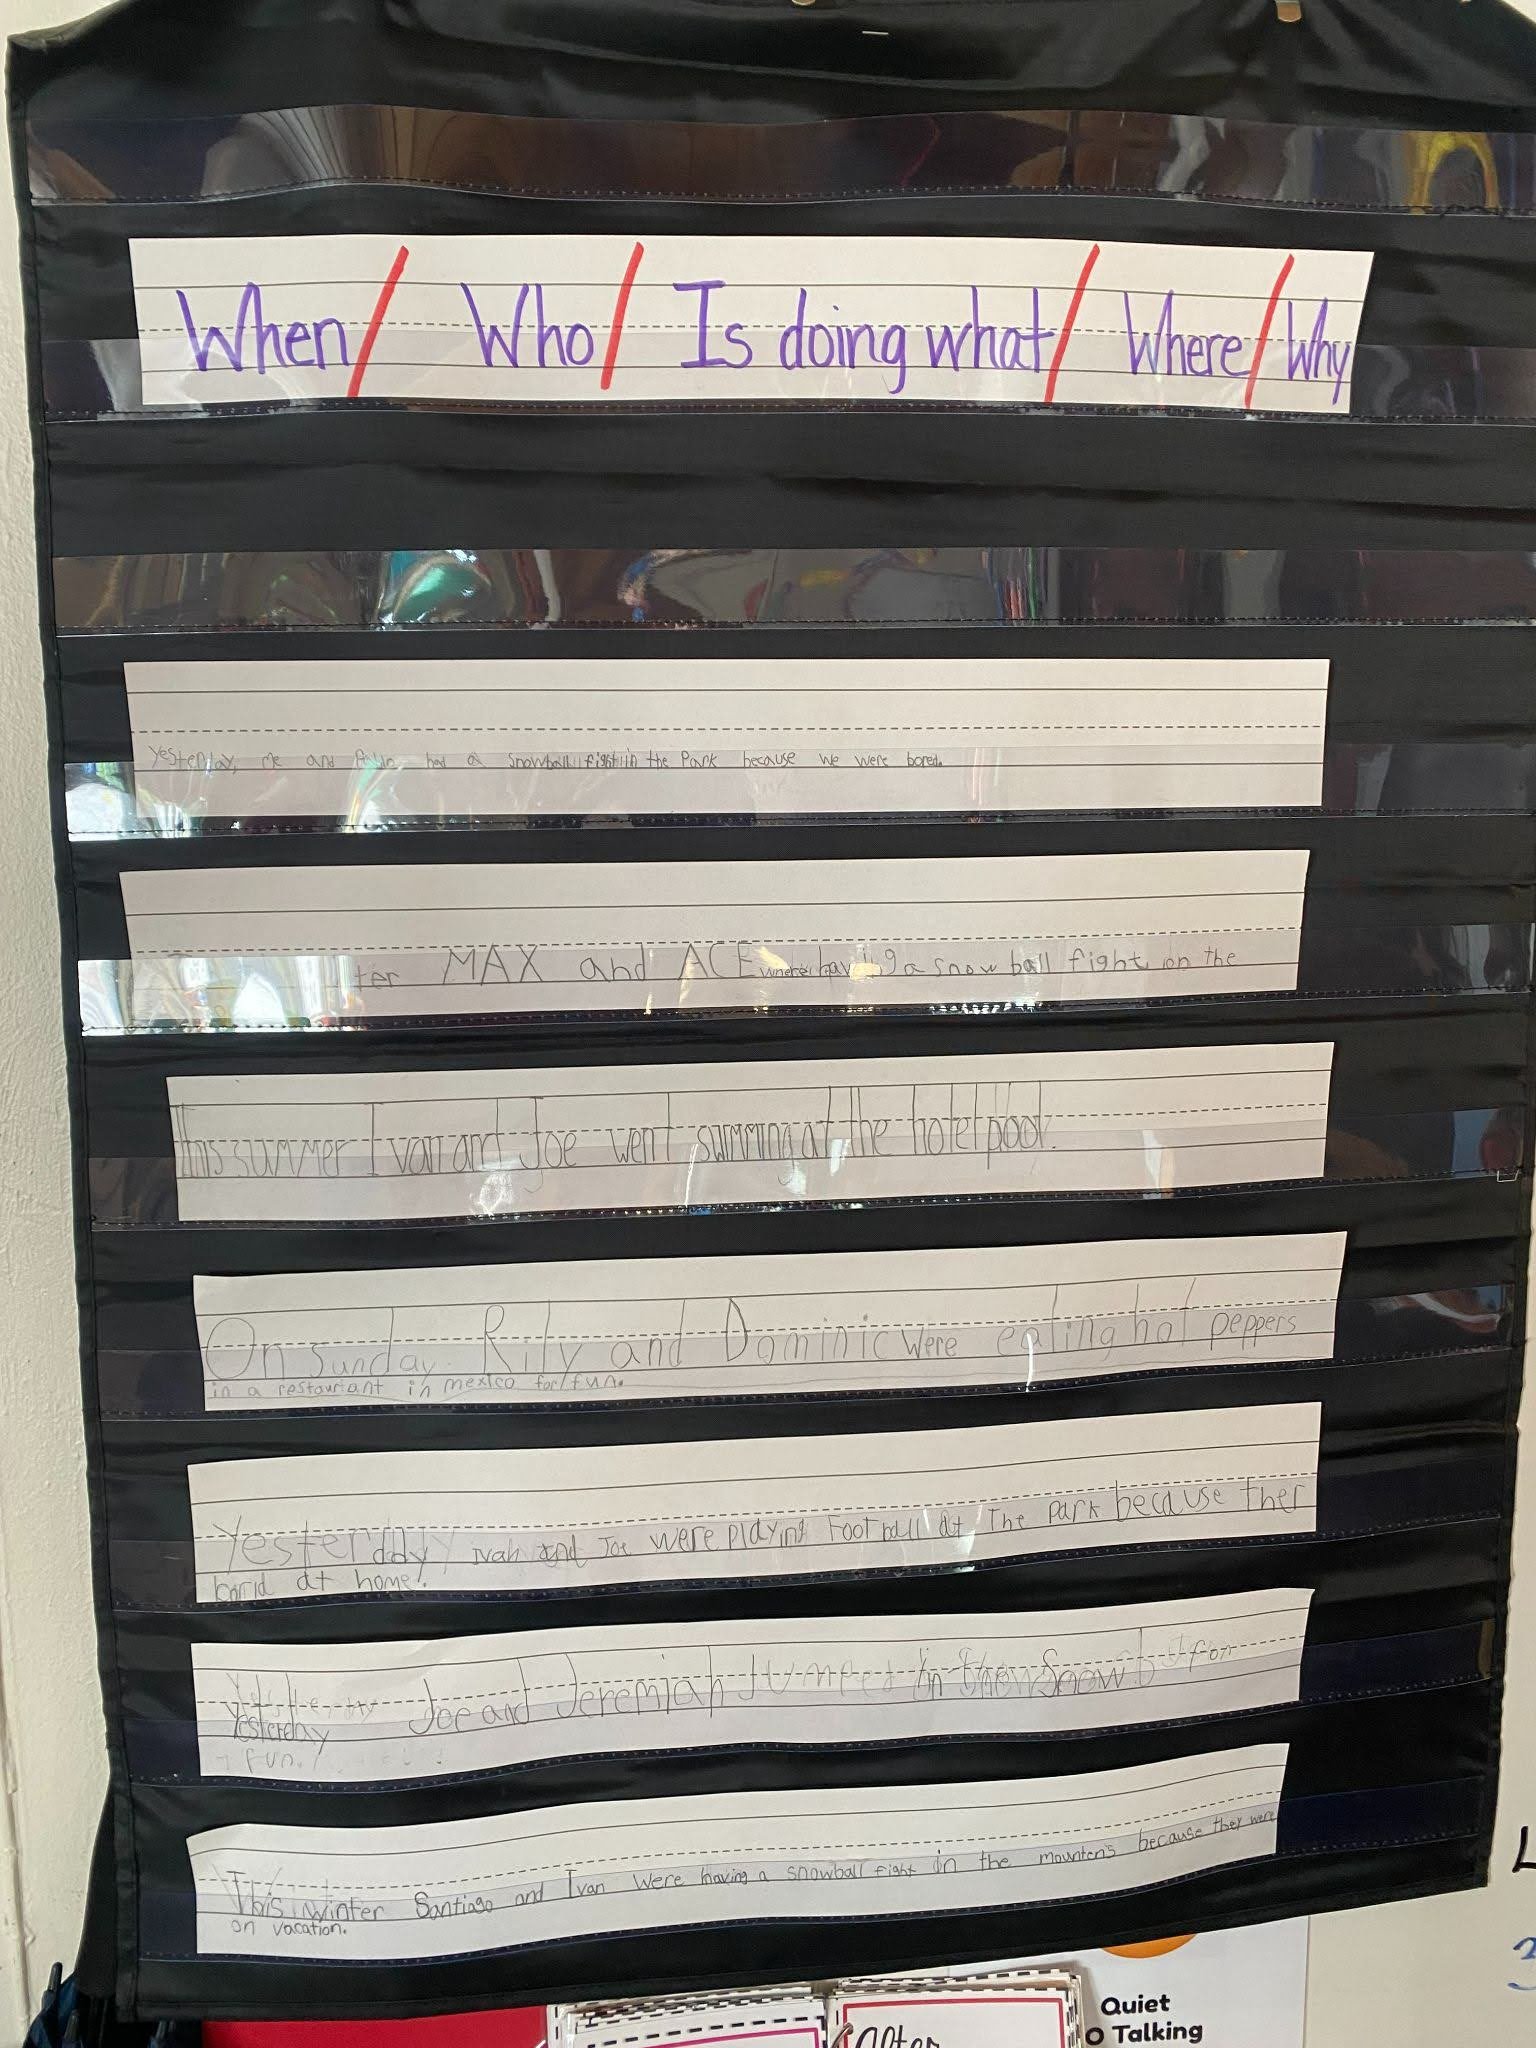 When/ Who/ Is doing what/ Where/ Why
Yesterday, me and had a snowball fight in the Park because we were bored.
ter MAX and ACE where having a snow ball fight on the
This summer Ivan and Joe went summing at the hotel pool.
On sunday. Rily and Dominic were eating hot peppers
in a restauriant in mexico for fun.
Yesterday Ivan and Joe were playing Foot ball at The park because ther
borid at home.
Yesterday Joe and Jeremiah Jumped in the Snow for
fun.
This winter Santiago and Ivan were having a snowball fight in the mountens because they were
on vacation.
after
Quiet
o Talking
3